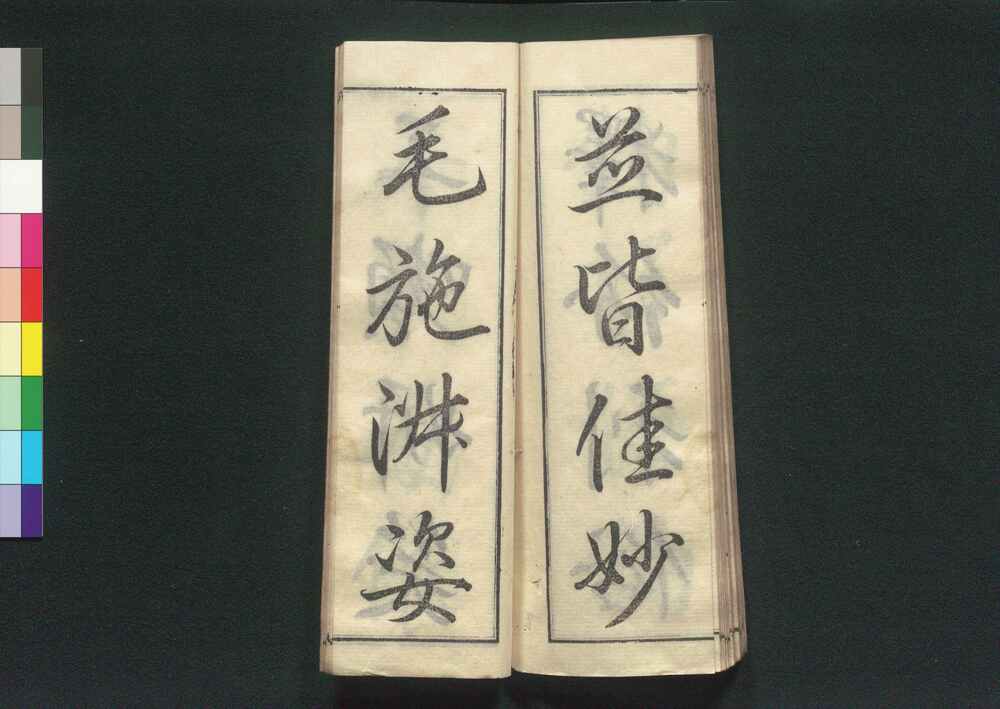 並皆佳妙
毛施淑姿